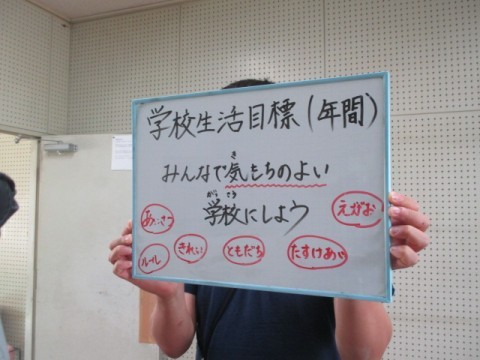 学校生活目標(年間)
みんなで気もちのよい
き
学校にしよう
がっこう
あいさつ
えがお
ルール
きれい
ともだち
たすけあい